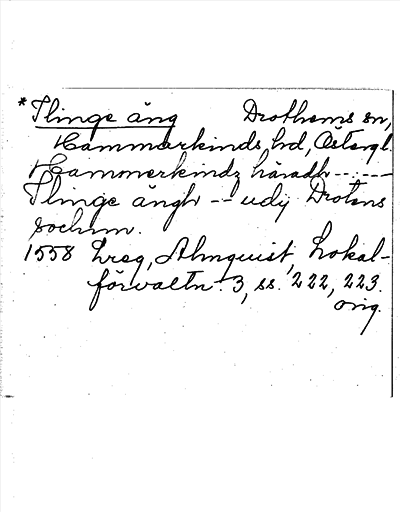 *Flinge äng Drothems sn,
Hammarkinds hd, Östergl.
Hammerkindz häradh -- . --
Flinge ängh -- udj Drotens
sochnn.
1558 Lreg, Almquist, Lokal-
förvaltn. 3, ss. 222, 223.
orig.